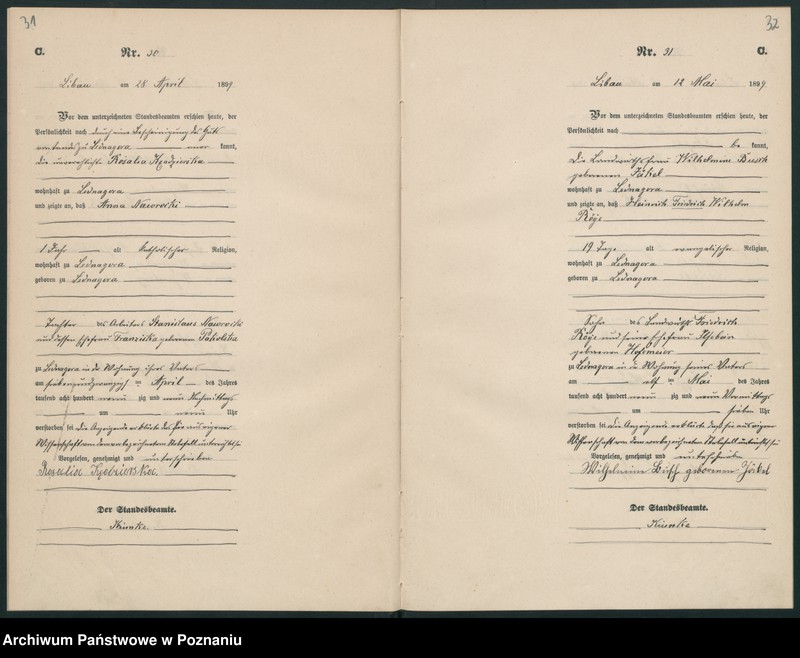 31
C.
Nr. 30
Libau am 28 April 1899
Vor dem unterzeichneten Standesbeamten erschien heute, der
Persönlichkeit nach durch eine Bescheinigung des Guts
vorstands zu Lednagora aner kannt,
die unverehelichte Rosalia
wohnhaft zu Lednagora
und zeigte an, daß Anna Naworski
1 Jahr alt katholischer Religion,
wohnhaft zu Lednagora
geboren zu Lednagora
Tochter des Arbeiters Stanislaus Naworski
und dessen Ehefrau Franziska geborenen
zu Lednagora in der Wohnung ihres Vaters
am siebenundzwanzigsten April des Jahres
tausend acht hundert neun zig und neun Nachmittags
um neun Uhr
verstorben sei. Die Anzeigende erklärte, daß sie aus eigener
Wissenschaft von dem vorbezeichneten Sterbefall unterrichtet sei
Vorgelesen, genehmigt und unterschrieben
Rosalia
Der Standesbeamte.
32
Nr. 31
C.
Libau am 12 Mai 1899
Vor dem unterzeichneten Standesbeamten erschien heute, der
Persönlichkeit nach
be kannt,
die Landwirthsfrau Wilhelmine
geborenen Jäkel
wohnhaft zu Lednagora
und zeigte an, daß Heinrich Friedrich Wilhelm
19 Tage alt evangelischer Religion,
wohnhaft zu Lednagora
geboren zu Lednagora
Sohn des Landwirths Friedrich
und seiner Ehefrau
geborenen
zu Lednagora in der Wohnung seines Vaters
am elf ten Mai des Jahres
tausend acht hundert neun zig und neun Vormittags
um sieben Uhr
verstorben sei. Die Anzeigende erklärte, daß sie aus eigener
Wissenschaft von dem vorbezeichneten Sterbefall unterrichtet sei
Vorgelesen, genehmigt und unterschrieben
Wilhelmine geborenen Jäkel
Der Standesbeamte.
Archiwum Państwowe w Poznaniu